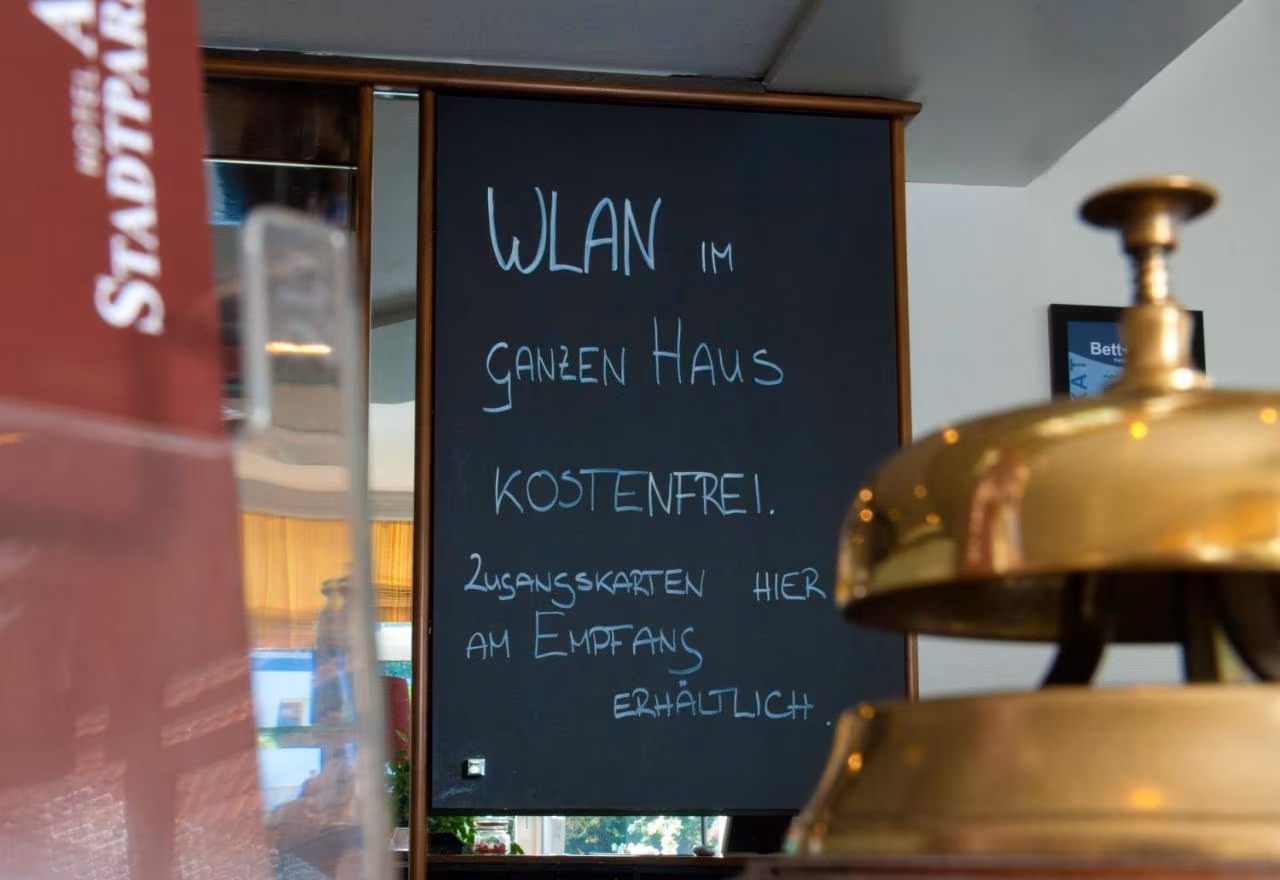 HOTEL A
STADTPAR
WLAN IM
GANZEN HAUS
KOSTENFREI.
ZUGANGSKARTEN HIER
AM EMPFANG
ERHÄLTLICH.
Bett+
KAT